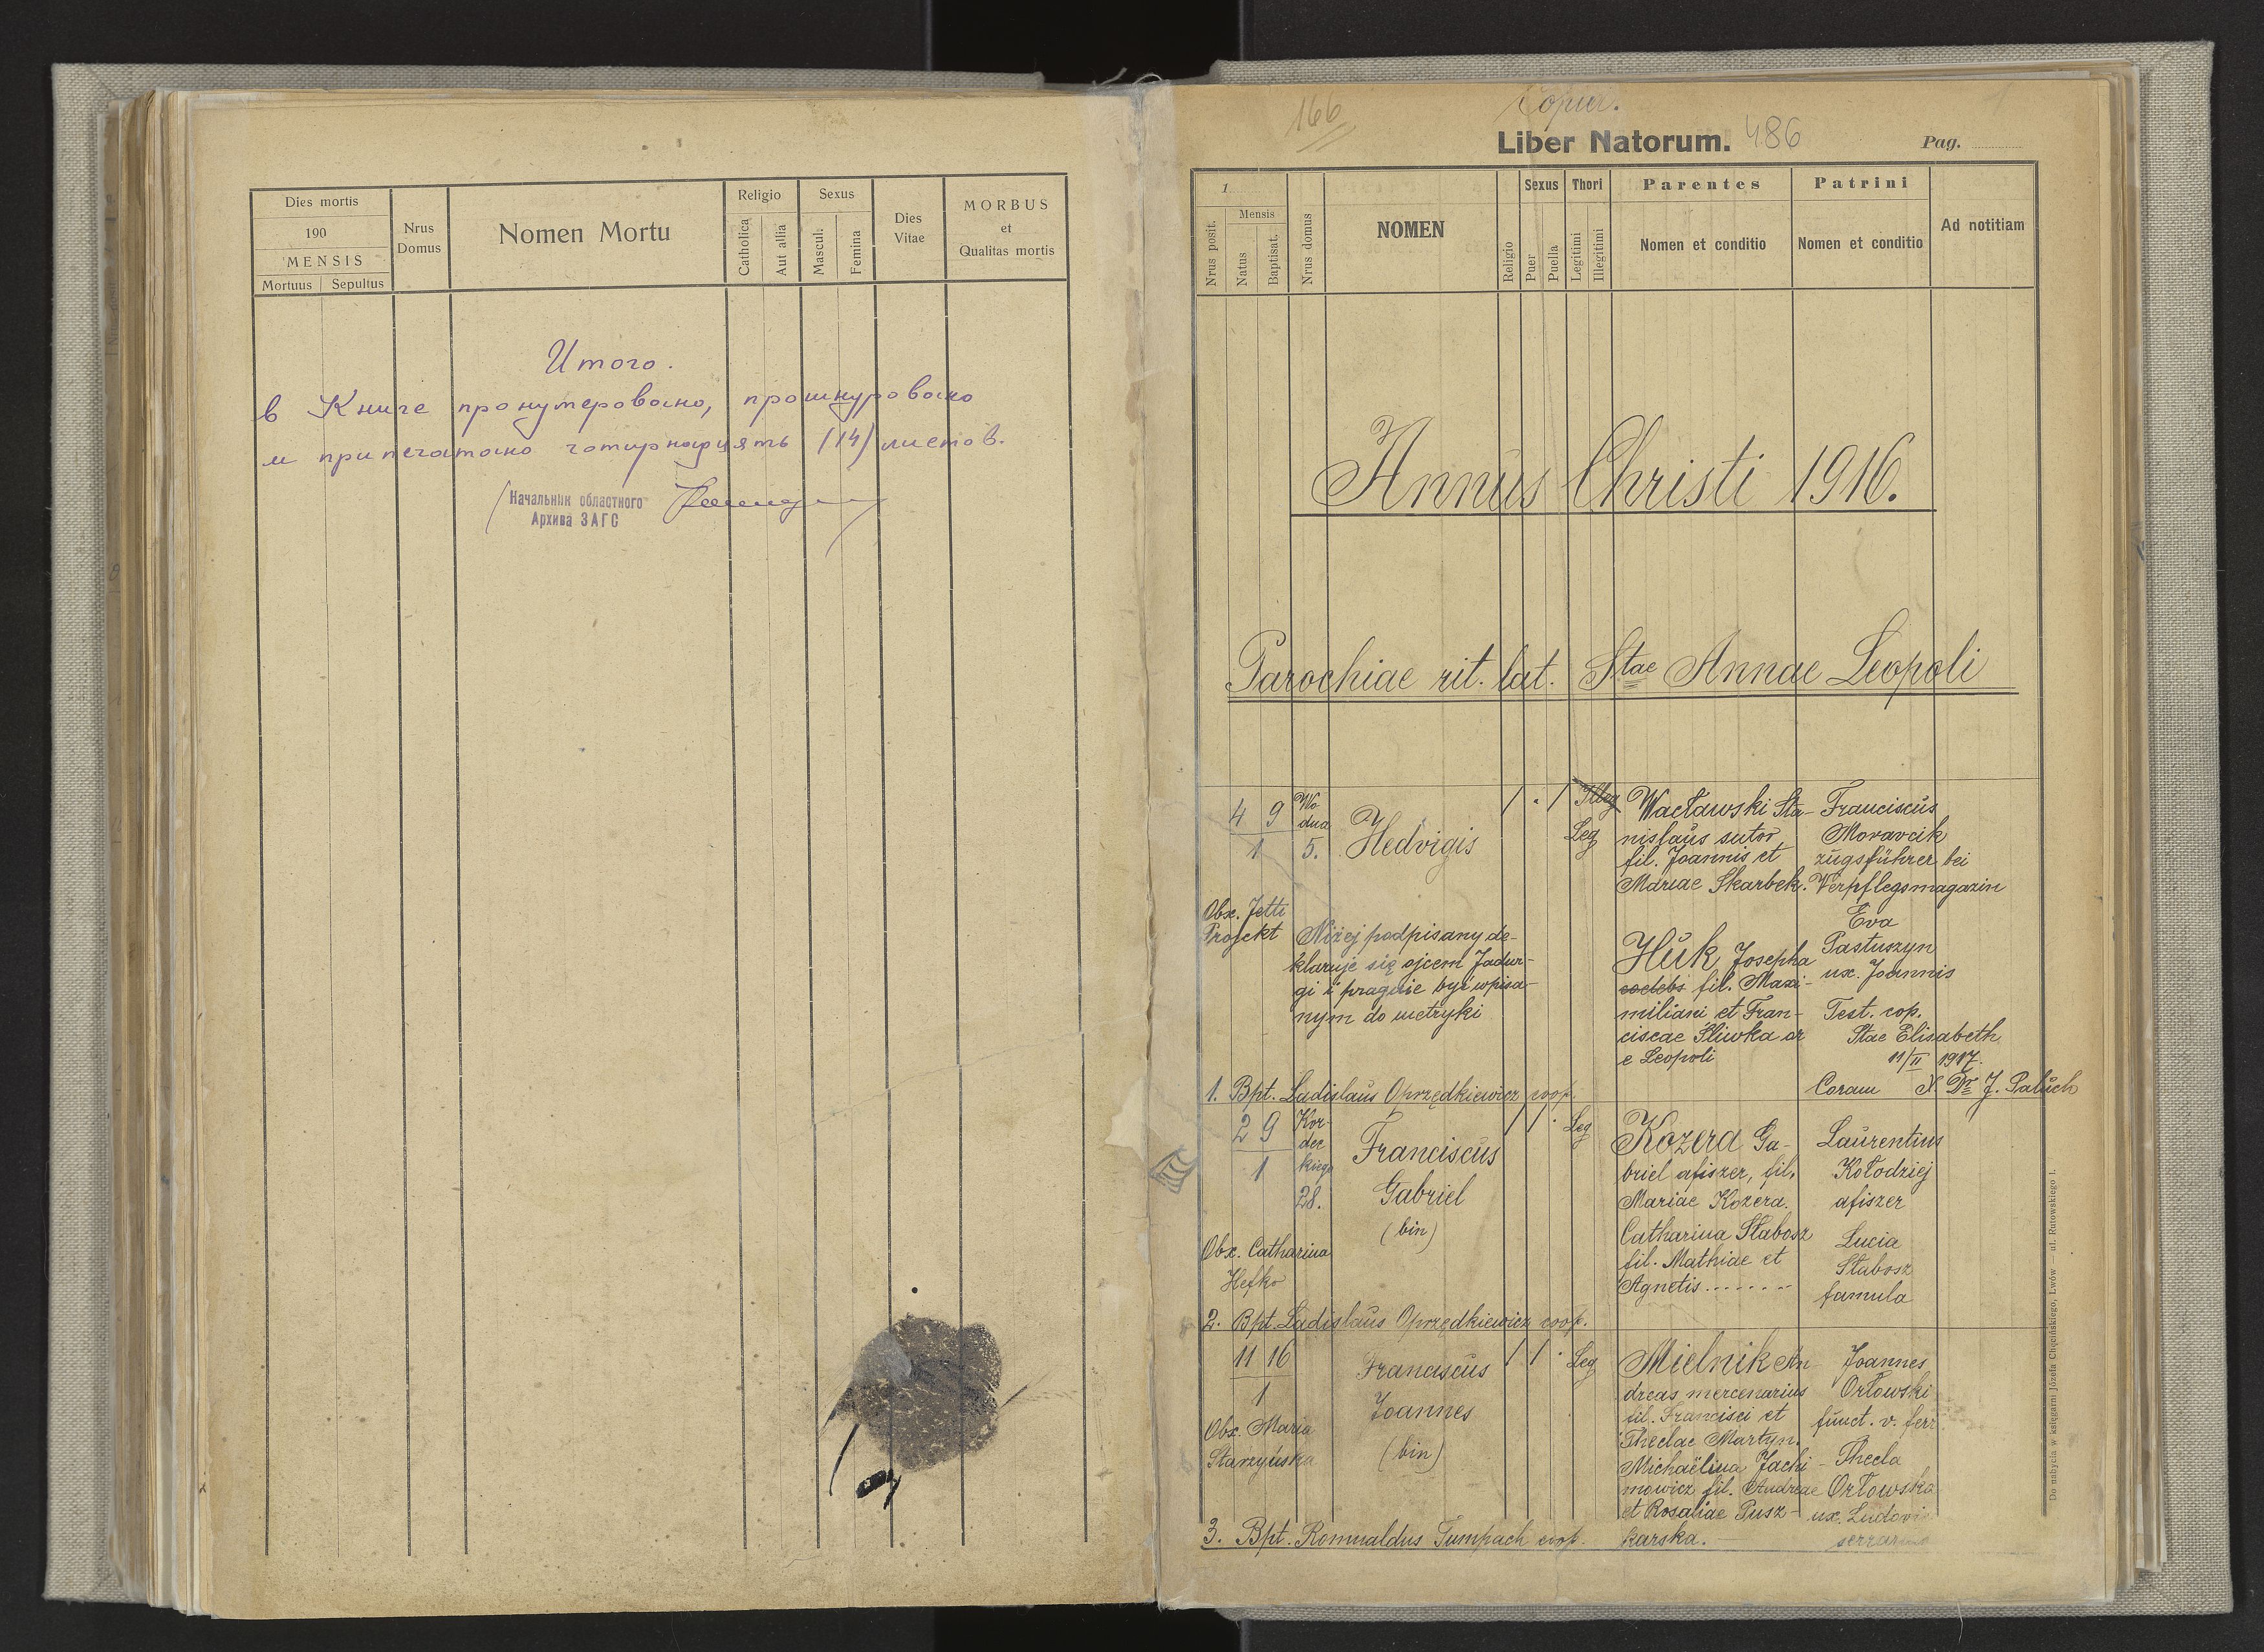 Dies mortis
190
MENSIS
Mortuus Sepultus
Nrus
Domus
Nomen Mortu
Religio
Catholica
Aut allia
Sexus
Mascul.
Femina
Dies
Vitae
MORBUS
et
Qualitas mortis
Итого.
в Книге пронумеровано, прошнуровано
и припечатано чотирнадцять (14) листов.
Начальник областного
Архива ЗАГС
166
Copier.
Liber Natorum. 486
Pag.
1
Nrus posit.
Mensis
Natus
Baptisat.
Nrus domus
NOMEN
Religio
Sexus
Puer
Puella
Thori
Legitimi
Illegitimi
Parentes
Nomen et conditio
Patrini
Nomen et conditio
Ad notitiam
Annus Christi 1916.
Parochiae rit. lat. Stae Annae Leopoli
4 9
1
Wo-
dna
5.
Hedvigis
1 . 1
Illeg
Leg
Wacławski Sta-
nislaus sutor
fil. Joannis et
Mariae Skarbek.
Franciscus
Moravcik
zugsführer bei
Verpflegsmagazin
Eva
Pastuszyn
ux. Joannis
Obx. Jetti
Projekt
Niżej podpisany de-
klaruje się ojcem Jadwi-
gi i pragnie być wpisa-
nym do metryki
Huk Josepha
coelebs fil. Maxi-
miliani et Fran-
ciscae Śliwka ar
e Leopoli
Test. cop.
Stae Elisabeth
11/II 1917.
Coram X. Dr J. Paluch
1. Bpt. Ladislaus Oprzędkiewicz coop.
2 9
1
Kor-
dec
kiego
28.
Franciscus
Gabriel
(bin)
1 1 .
Leg
Kozera Ga-
briel afiszer, fil.
Mariae Kozera.
Catharina Słabosz
fil. Mathiae et
Agnetis........
Laurentius
Kołodziej
afiszer
Lucia
Słabosz
famula
Obx. Catharina
Hefko
2. Bpt. Ladislaus Oprzędkiewicz coop.
11 16
1
Franciscus
Joannes
(bin)
1 1 .
Leg
Mielnik An
dreas mercenarius
fil. Francisci et
Theclae Martyn.
Michaëlina Jachi-
mowicz fil. Andreae
et Rosaliae Pusz-
karska.
Joannes
Orłowski
funct. v. ferr
Thecla
Orłowska
ux. Ludovic
Obx. Maria
Starzyńska
3. Bpt. Romualdus Tumpach coop.
Do nabycia w księgarni Józefa Chęcińskiego, Lwów — ul. Rutowskiego 1.